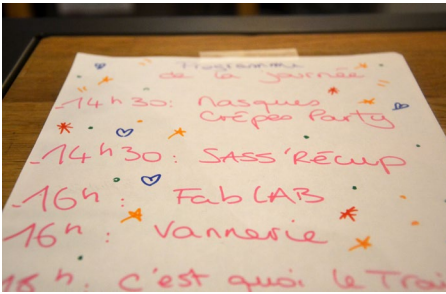 Programme
de la journée
-14h30: Masques
Crêpes Party
-14h30: SASS'Récup
-16h: FabLAB
16h: Vannerie
h: C'est quoi le Tra